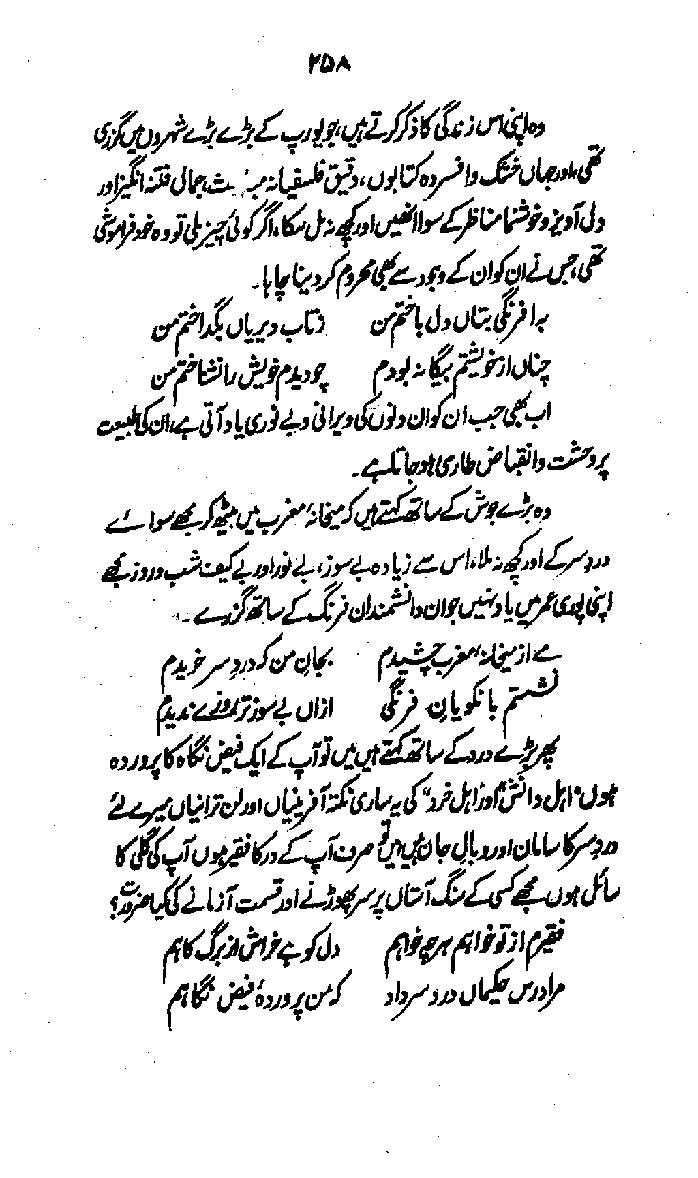 ۲۵۸
وہ اپنی اس زندگی کا ذکر کرتے ہیں، جو یورپ کے بڑے بڑے شہروں میں گزری
تھی، اور جہاں خشک و افسردہ کتابوں، دقیق فلسفیانہ جمالی فتنہ انگیز اور
دل آویز و خوشنما مناظر کے سوا انھیں اور کچھ نہ مل سکا، اگر کوئی چیز ملی تو وہ خود فراموشی
تھی، جس نے ان کو ان کے وجود سے بھی محروم کر دینا چاہا۔
بہ افرنگی بتاں دل باختم من زتاب دیریاں بگداختم من
چناں از خویشتم بیگانہ بودم چو دیدم خویش را نشناختم من
اب بھی جب ان کو ان دنوں کی ویرانی و بے نوری یاد آتی ہے، ان کی طبیعت
پر وحشت و انقباض طاری ہو جاتا ہے۔
وہ بڑے جوش کے ساتھ کہتے ہیں کہ میخانۂ مغرب میں بیٹھ کر مجھے سوائے
درد سر کے اور کچھ نہ ملا، اس سے زیادہ بے سوز، بے نور اور بے کیف شب و روز مجھے
اپنی پوری عمر میں یاد نہیں جو ان دانشمندان فرنگ کے ساتھ گزرے۔
مے از میخانۂ مغرب چشیدم بجانِ من کہ دردِ سر خریدم
نشستم بانکویانِ فرنگی ازاں بے سوز تر روزے ندیدم
پھر بڑے درد کے ساتھ کہتے ہیں میں تو آپ کے ایک فیض نگاہ کا پروردہ
ہوں "اہل دانش" اور "اہل خرد" کی یہ ساری نکتہ آفرینیاں اور لن ترانیاں میرے لئے
درد سر کا سامان اور وبال جان ہیں میں تو صرف آپ کے در کا فقیر ہوں آپ کی گلی کا
سائل ہوں مجھے کسی کے سنگ آستاں پر سر پھوڑنے اور قسمت آزمانے کی کیا ضرورت؟
فقیرم از تو خواہم ہرچہ خواہم دل کوہے خراش از برگ کاہم
مرا درس حکیماں درد سر داد کہ من پروردۂ فیض نگاہم